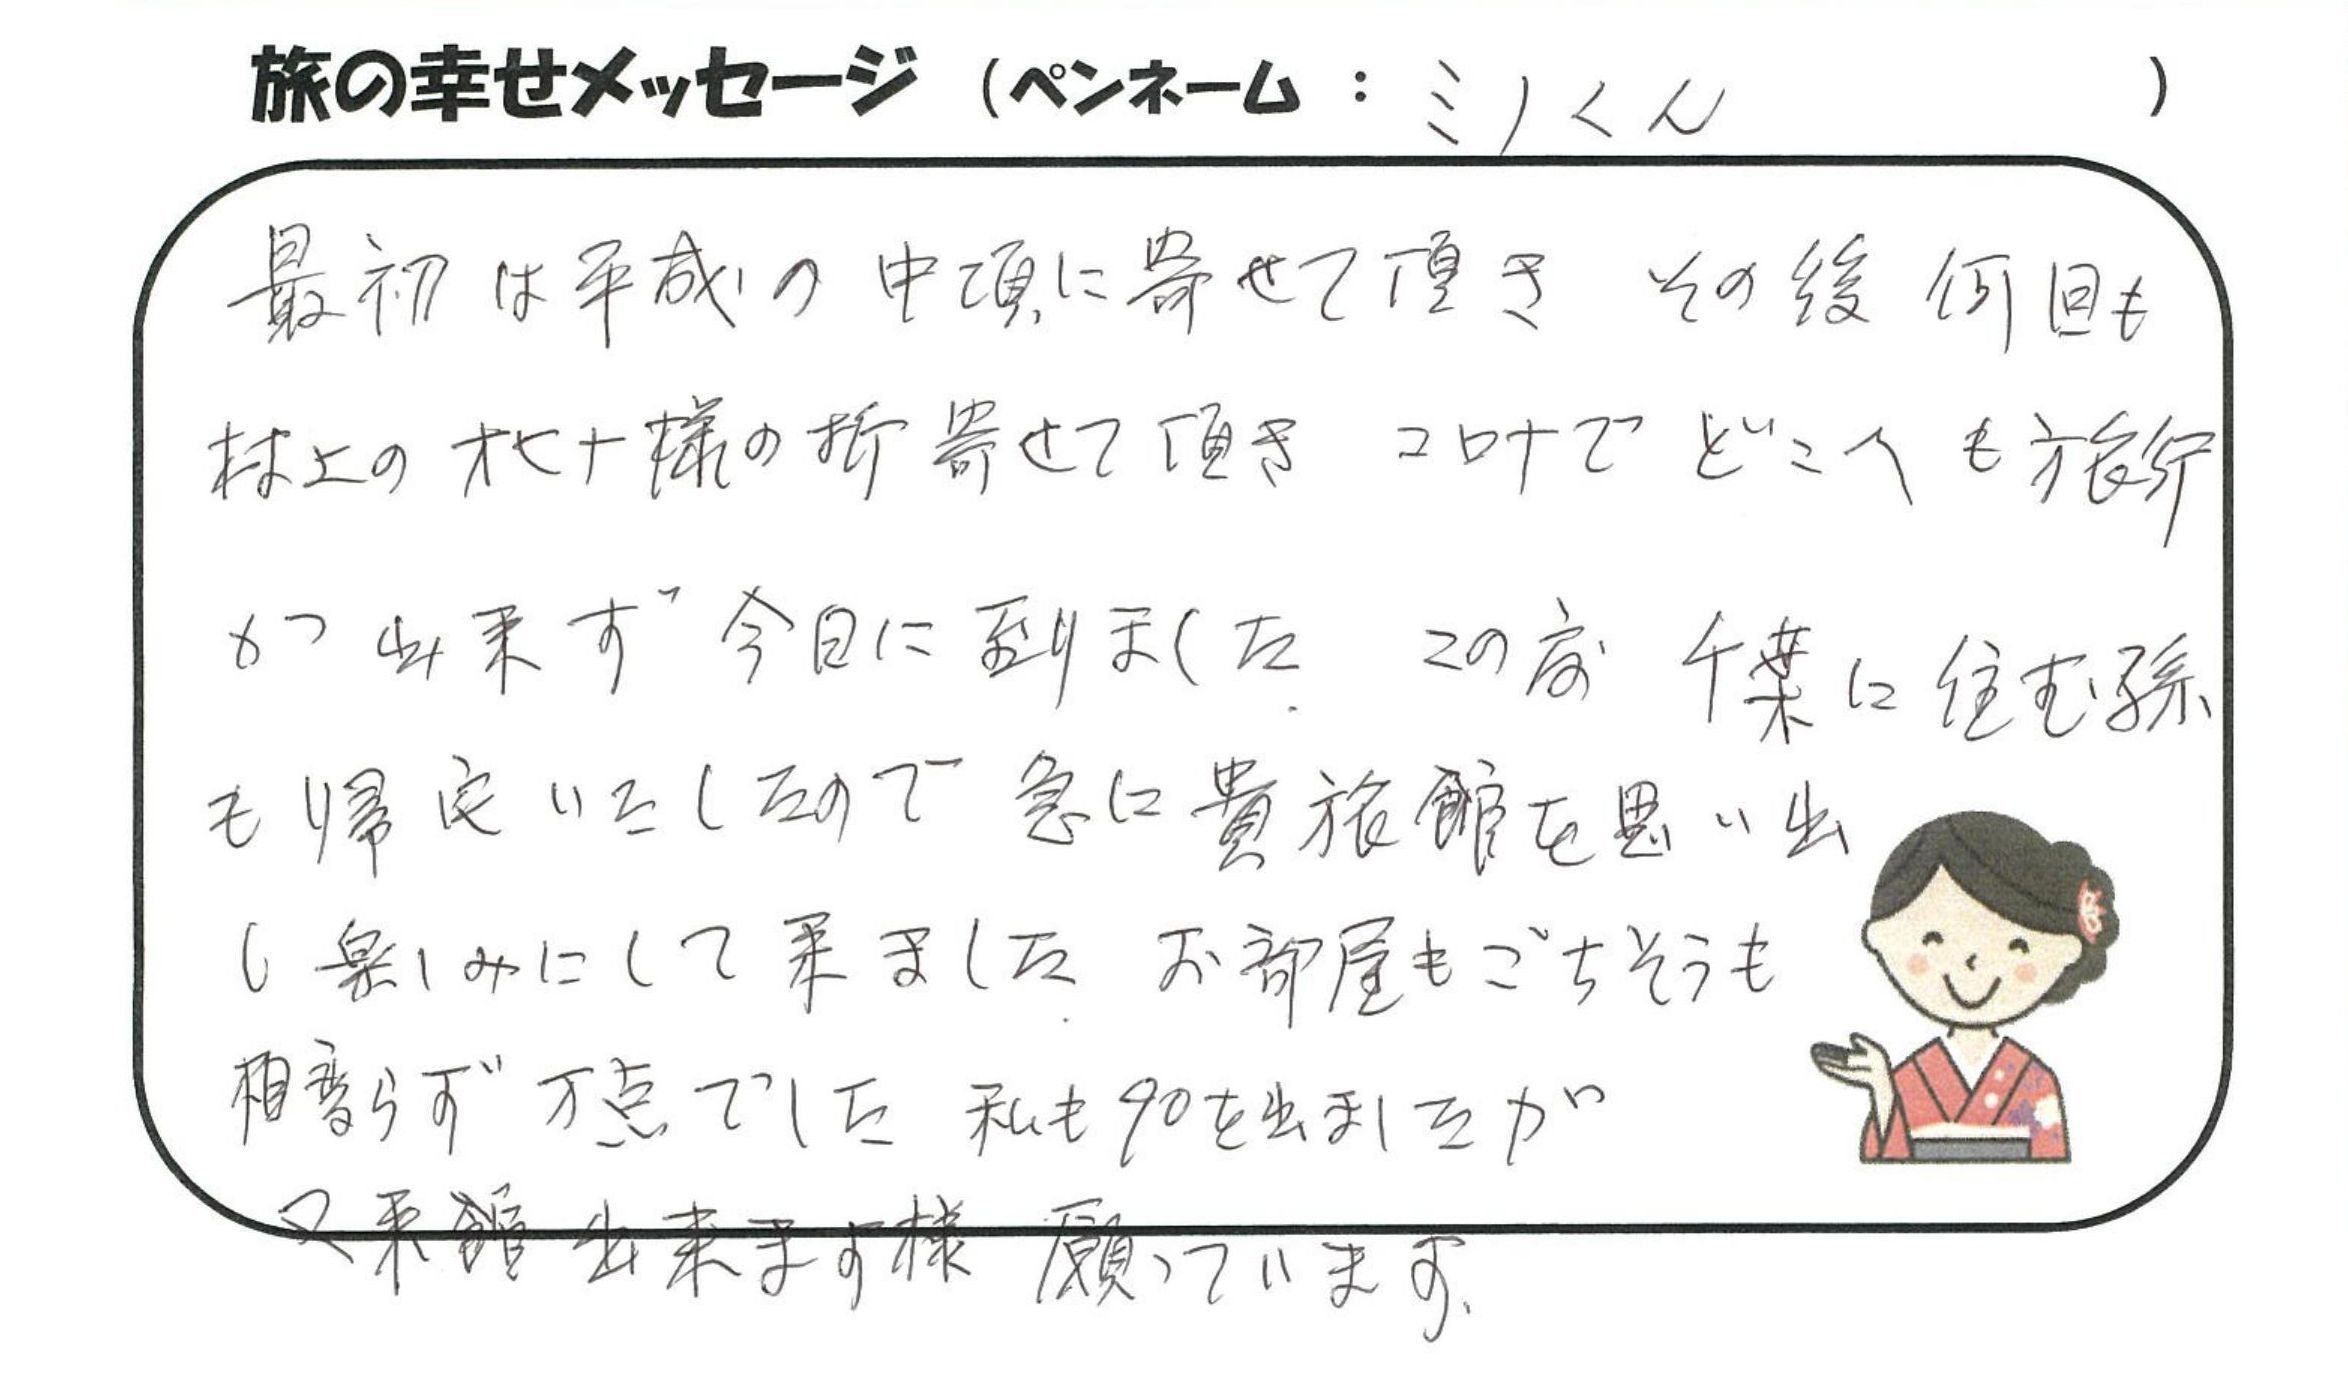 旅の幸せメッセージ (ペンネーム : ミノくん )
最初は平成の中頃に寄せて頂き その後 何回も
村上のオヒナ様の折 寄せて頂き コロナで どこへも旅行
が出来ず 今日に到りました。 この度 千葉に住む孫
も帰宅いたしたので 急に貴旅館を思い出
し楽しみにして来ました。 お部屋もごちそうも
相変らず 万点でした 私も90を出ましたが
又来館出来ます様 願っています。